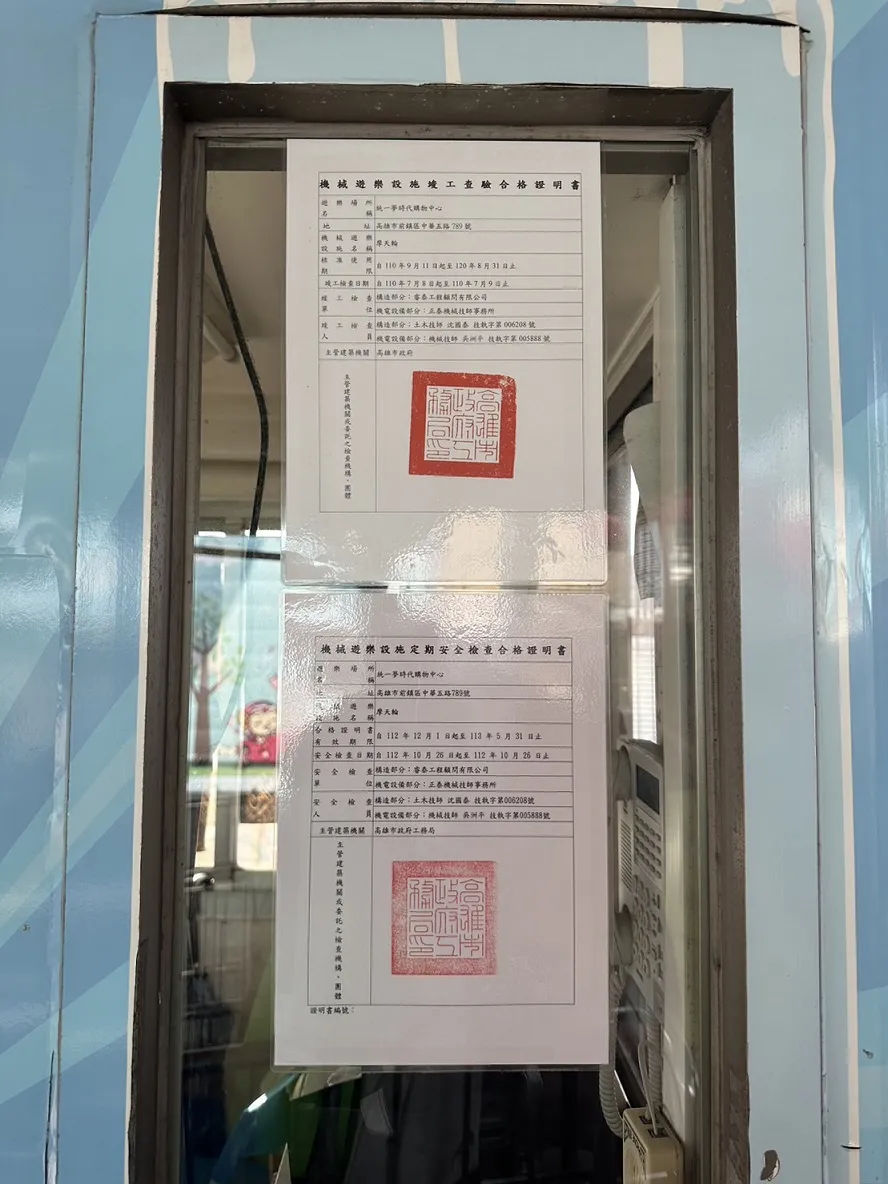 機械遊樂設施竣工查驗合格證明書
遊樂場所名稱 統一夢時代購物中心
地址 高雄市前鎮區中華五路789號
機械遊樂設施名稱 摩天輪
核准使用期限 自110年9月11日起至120年8月31日止
竣工檢查日期 自110年7月8日起至110年7月9日止
竣工檢查單位 構造部分：睿泰工程顧問有限公司
機電設備部分：正泰機械技師事務所
竣工檢查人員 構造部分：土木技師 沈國泰 技執字第006208號
機電設備部分：機械技師 吳洲平 技執字第005888號
主管建築機關 高雄市政府
主管建築機關或委託之檢查機構、團體
高雄市政府工務局印
機械遊樂設施定期安全檢查合格證明書
遊樂場所名稱 統一夢時代購物中心
地址 高雄市前鎮區中華五路789號
機械遊樂設施名稱 摩天輪
合格證明書有效期限 自112年12月1日起至113年5月31日止
安全檢查日期 自112年10月26日起至112年10月26日止
安全檢查單位 構造部分：睿泰工程顧問有限公司
機電設備部分：正泰機械技師事務所
安全檢查人員 構造部分：土木技師 沈國泰 技執字第006208號
機電設備部分：機械技師 吳洲平 技執字第005888號
主管建築機關 高雄市政府工務局
主管建築機關或委託之檢查機構、團體
高雄市政府工務局印
證明書編號：